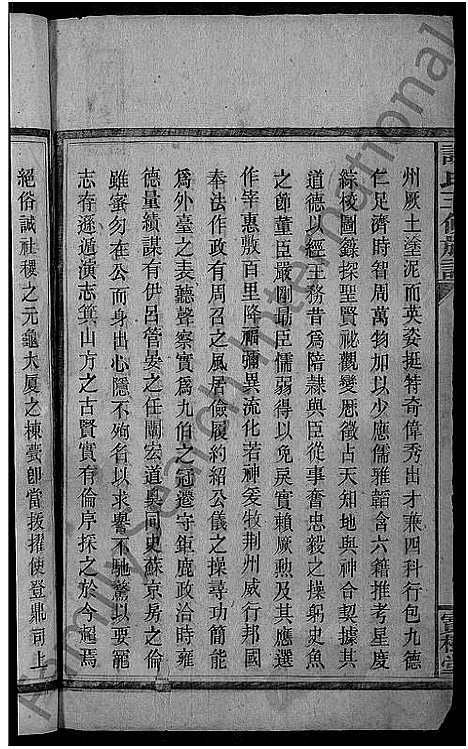 州厥土塗泥而英姿挺特奇偉秀出才兼四科行包九德
仁足濟時智周萬物加以少應儒雅韜含六籍推考星度
綜校圖錄探聖賢祕觀變歷徵占天知地與神合契據其
道德以經王務昔爲陪隸與臣從事奮忠毅之操躬史魚
之節董臣嚴剛勗臣懦弱得以免戾實賴厥勲及其應選
作宰惠敷百里降福彌異流化若神爰牧荆州威行邦國
奉法作政有周召之風居儉履約紹公儀之操尋功簡能
爲外臺之表聽聲察實爲九伯之冠遷守鉅鹿政洽時雍
德量績謀有伊呂管晏之任闡宏道奧同史蘇京房之倫
雖密勿在公而身出心隱不殉名以求譽不馳騖以要寵
志存遜遁演志箕山方之古賢實有倫序採之於今超焉
絕俗誠社稷之元龜大厦之棟甍卽當拔擢使登鼎司上
氏三修族譜
FamilySearch International